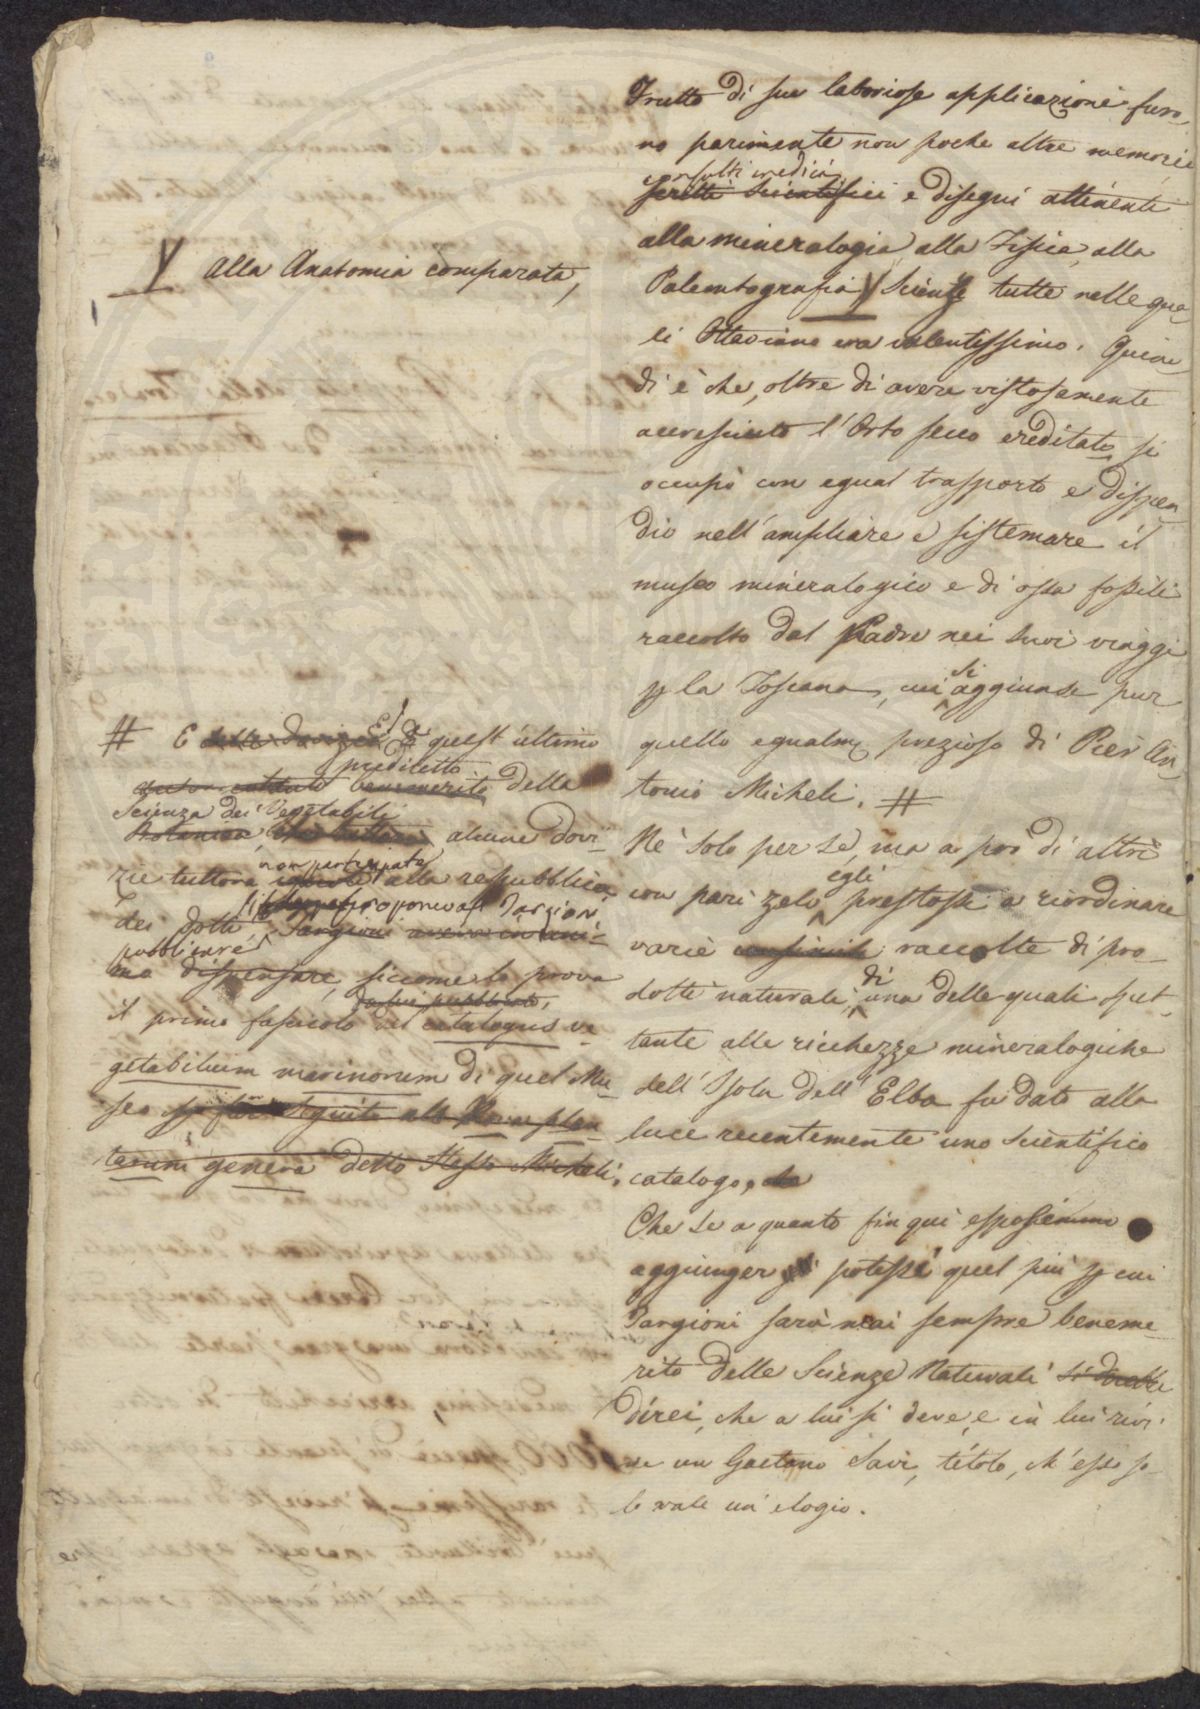 Frutto di sue laboriose applicazioni furo-
no parimente non poche altre memorie
consulti medici,
scritti scientifici e disegni attenenti
alla mineralogia, alla Fisica, alla
Paleontografia V Scienze tutte nelle qua-
li Ottaviano era valentissimo. Quin-
di è che, oltre di avere vistosamente
accresciuto l'Orto secco ereditato, si
occupò con egual trasporto e dispen-
dio nell'ampliare e sistemare il
museo mineralogico e di ossa fossili
raccolto dal Padre nei suoi viaggi
p la Toscana, cui si aggiunse pur
quello egualm. prezioso di Pier An-
tonio Micheli. #
Nè solo per se, ma a prò di altri
con pari zelo egli prestossi a riordinare
varie consimili raccolte di pro-
dotti naturali, di una delle quali spet-
tante alle ricchezze mineralogiche
dell'Isola dell'Elba fu dato alla
luce recentemente uno scientifico
catalogo,
Che se a quanto fin qui esposi
aggiunger potessi quel più p cui
Targioni sarà mai sempre beneme-
rito delle Scienze Naturali si dovette
direi, che a lui si deve, e in lui rivi-
ve un Gaetano Savi, titolo, ch'esso so-
lo vale un elogio.
V alla Anatomia comparata,
# E delle dovizie E di quest'ultimo
prediletto
benemerito della
Scienza dei Vegetabili
Botanica, alcune dovi-
non partecipate
zie tuttora ignote alla repubblica
si proponeva il Targioni
dei Dotti, Targioni aveva in ani-
pubblicare
mo dispensare, siccome lo prova
da lui pubblicato,
il primo fascicolo del catalogus ve-
getabilium marinorum di quel Mu-
seo seguito alla Nova plan-
tarum genera dello stesso Micheli.